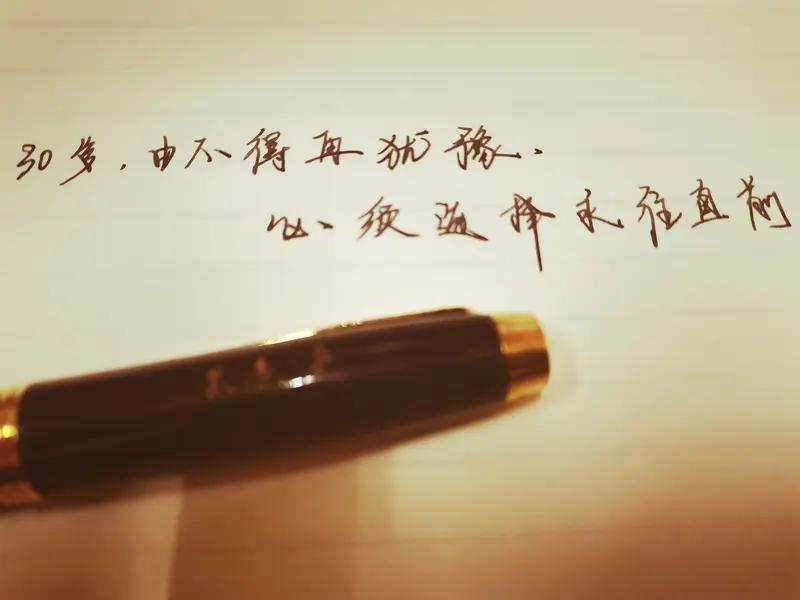 30岁，由不得再犹豫.
必须选择永往直前